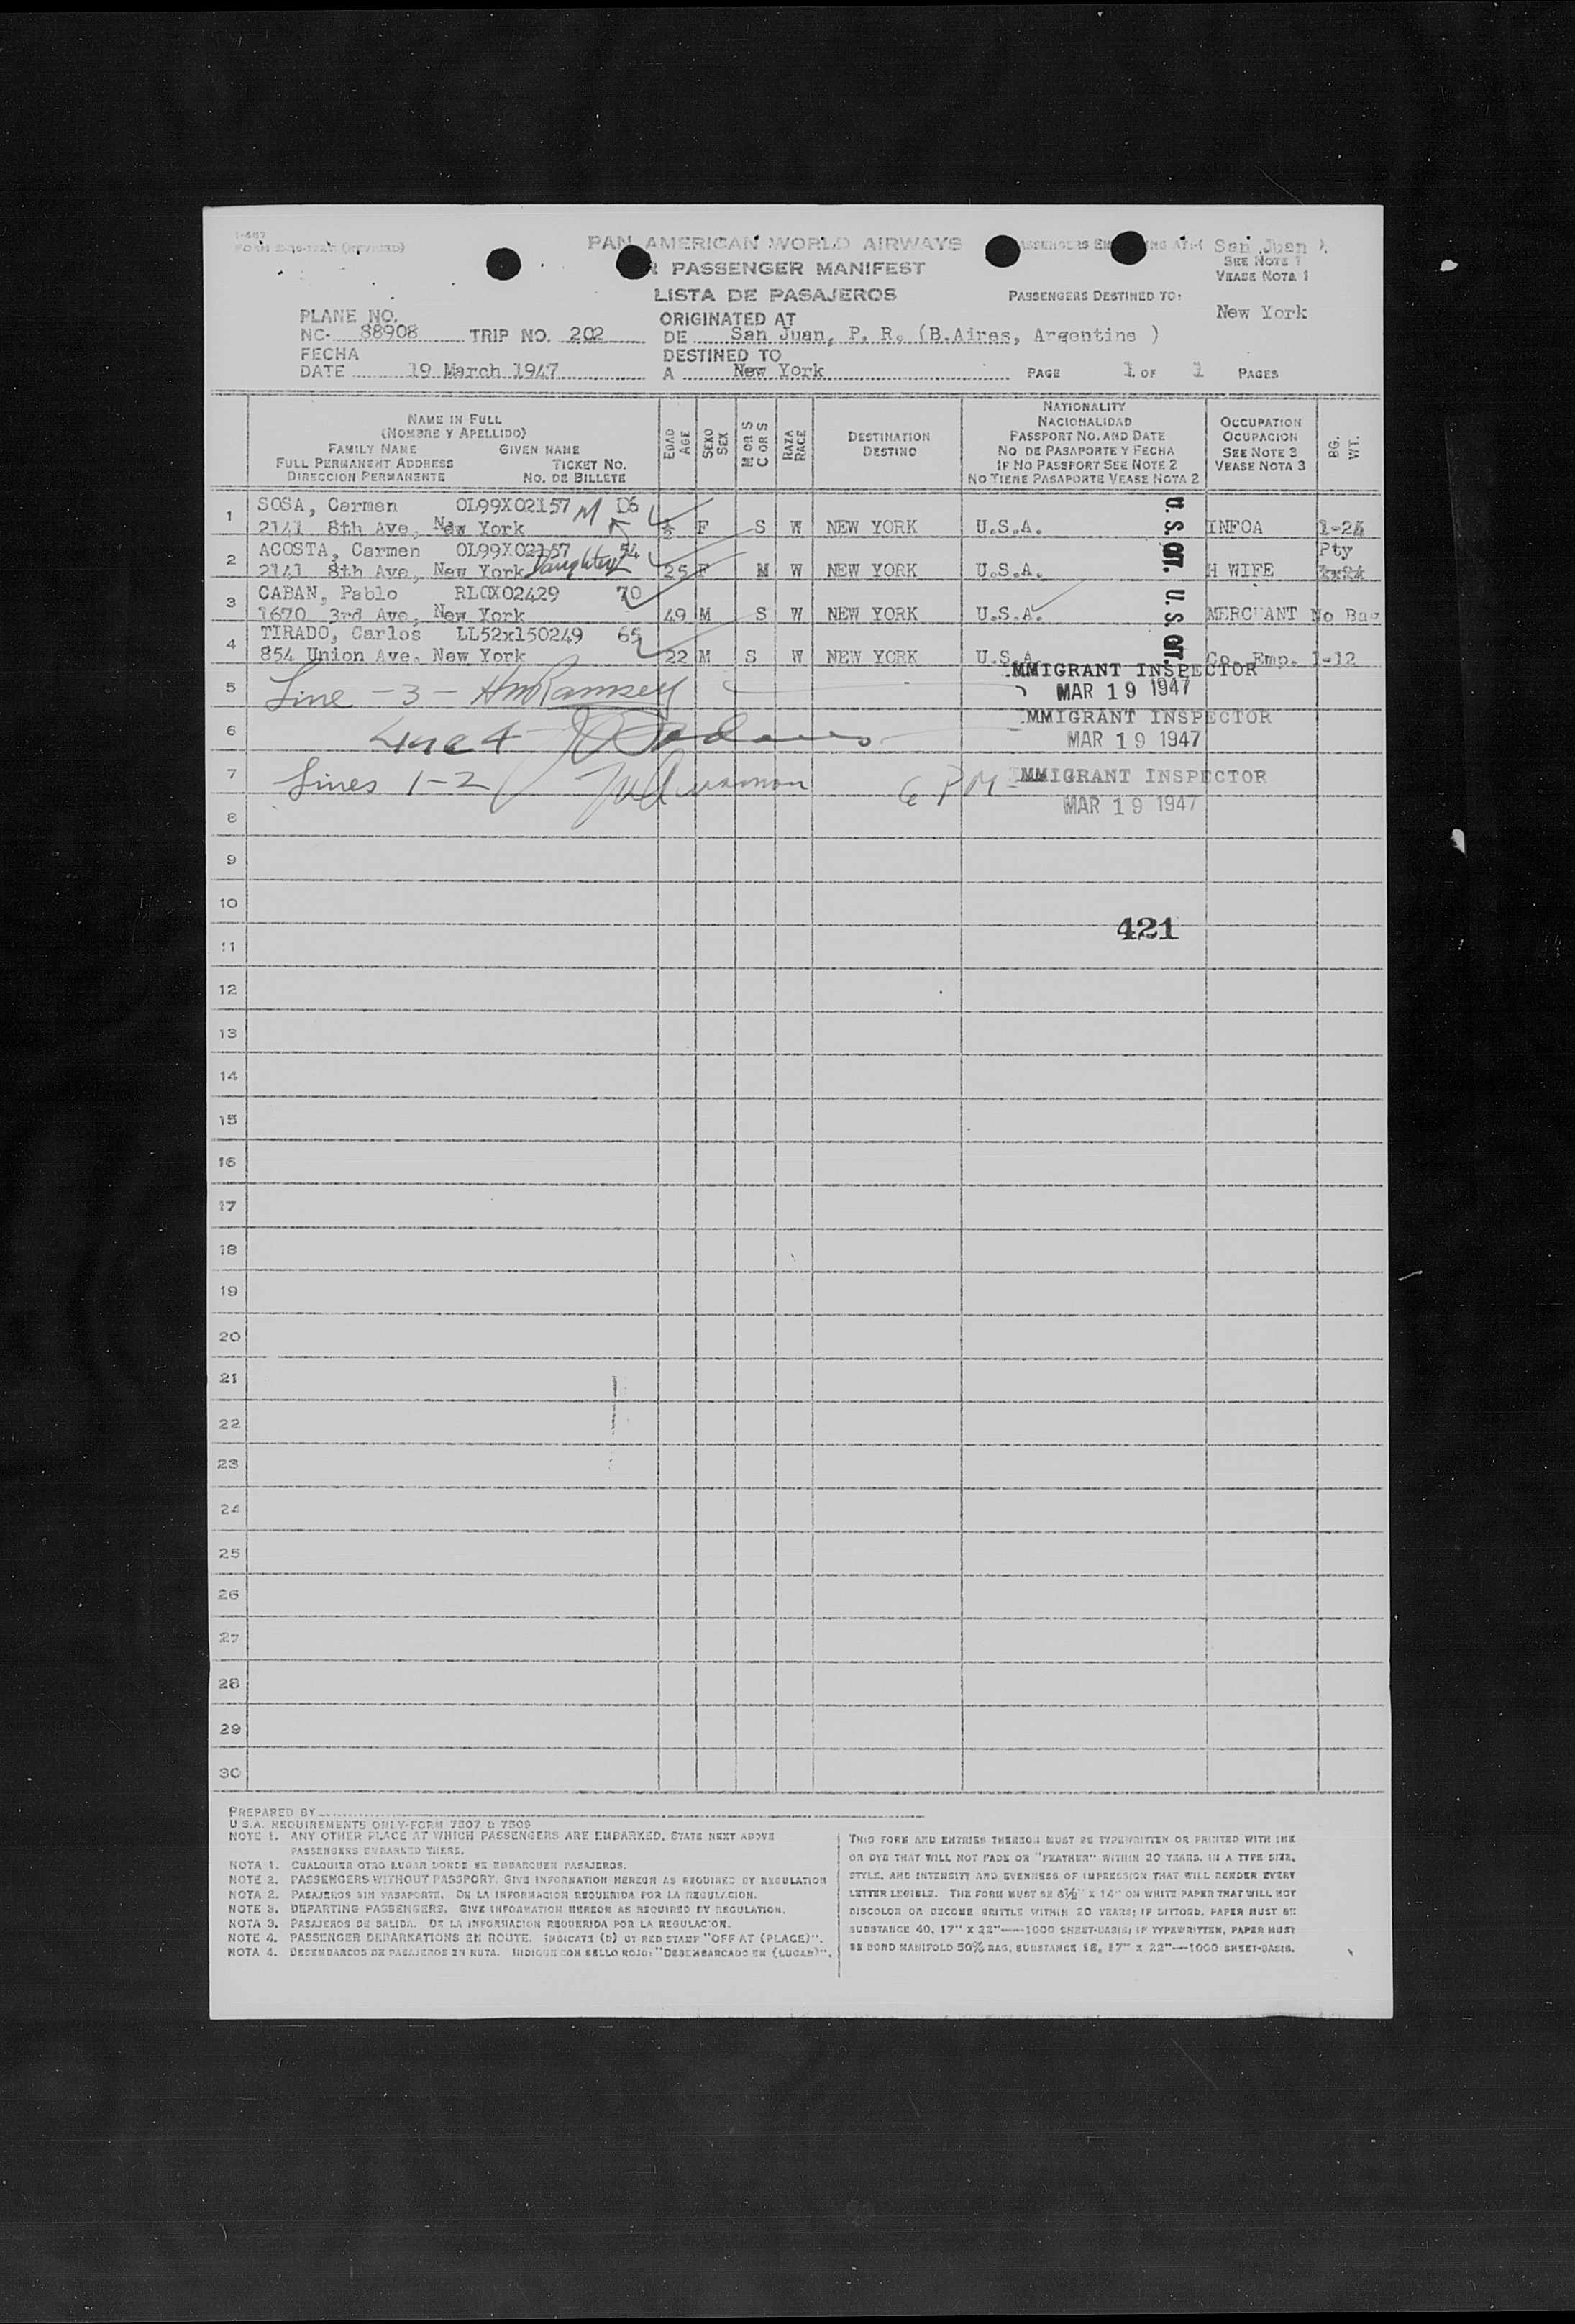 I-467
PAN AMERICAN WORLD AIRWAYS
PASSENGER MANIFEST
LISTA DE PASAJEROS
San Juan )
SEE NOTE 1
VEASE NOTA 1
PASSENGERS DESTINED TO:
New York
PLANE NO.
NC- 88908 TRIP NO. 202
ORIGINATED AT
DE San Juan, P. R. (B.Aires, Argentina )
FECHA
DATE 19 March 1947
DESTINED TO
A New York
PAGE 1 OF 1 PAGES
NAME IN FULL
(NOMBRE Y APELLIDO)
FAMILY NAME GIVEN NAME
FULL PERMANENT ADDRESS TICKET NO.
DIRECCION PERMANENTE NO. DE BILLETE
EDAD AGE
SEXO SEX
M OR S C OR S
RAZA RACE
DESTINATION
DESTINO
NATIONALITY
NACIONALIDAD
PASSPORT NO. AND DATE
NO DE PASAPORTE Y FECHA
IF NO PASSPORT SEE NOTE 2
NO TIENE PASAPORTE VEASE NOTA 2
OCCUPATION
OCUPACION
SEE NOTE 3
VEASE NOTA 3
BG. WT.
1 SOSA, Carmen OL99X02157 M 06
2141 8th Ave, New York F S W NEW YORK U.S.A. INFOA
2 ACOSTA, Carmen OL99X02157 54 Pty
2141 8th Ave, New York Daughter 25 F M W NEW YORK U.S.A. H WIFE
3 CABAN, Pablo RLOX02429 70
1670 3rd Ave, New York 49 M S W NEW YORK U.S.A. MERCHANT No Bag
4 TIRADO, Carlos LL52x150249 65
854 Union Ave. New York 22 M S W NEW YORK U.S.A. Co. Emp. 1-12
U. S. CIT. U. S. CIT.
IMMIGRANT INSPECTOR
5 Line -3- HmRamsey MAR 19 1947
IMMIGRANT INSPECTOR
6 Line 4 MAR 19 1947
7 Lines 1-2 6 PM IMMIGRANT INSPECTOR
MAR 19 1947
8
9
10
421
11
12
13
14
15
16
17
18
19
20
21
22
23
24
25
26
27
28
29
30
PREPARED BY
U.S.A. REQUIREMENTS ONLY-FORM 7507 & 7509
NOTE 1. ANY OTHER PLACE AT WHICH PASSENGERS ARE EMBARKED, STATE NEXT ABOVE
PASSENGERS EMBARKED THERE.
NOTA 1. CUALQUIER OTRO LUGAR DONDE SE EMBARQUEN PASAJEROS.
NOTE 2. PASSENGERS WITHOUT PASSPORT. GIVE INFORMATION HEREON AS REQUIRED BY REGULATION
NOTA 2. PASAJEROS SIN PASAPORTE. DE LA INFORMACION REQUERIDA POR LA REGULACION.
NOTE 3. DEPARTING PASSENGERS. GIVE INFORMATION HEREON AS REQUIRED BY REGULATION.
NOTA 3. PASAJEROS DE SALIDA. DE LA INFORMACION REQUERIDA POR LA REGULACION.
NOTE 4. PASSENGER DEBARKATIONS EN ROUTE. INDICATE (D) BY RED STAMP "OFF AT (PLACE)".
NOTA 4. DESEMBARCOS DE PASAJEROS EN RUTA. INDIQUE CON SELLO ROJO: "DESEMBARCADO EN (LUGAR)".
THIS FORM AND ENTRIES THEREON MUST BE TYPEWRITTEN OR PRINTED WITH INK
OR DYE THAT WILL NOT FADE OR "FEATHER" WITHIN 20 YEARS. IN A TYPE SIZE,
STYLE, AND INTENSITY AND EVENNESS OF IMPRESSION THAT WILL RENDER EVERY
LETTER LEGIBLE. THE FORM MUST BE 8½" X 14" ON WHITE PAPER THAT WILL NOT
DISCOLOR OR BECOME BRITTLE WITHIN 20 YEARS; IF DITTOED, PAPER MUST BE
SUBSTANCE 40, 17" X 22"—1000 SHEET-BASIS; IF TYPEWRITTEN, PAPER MUST
BE BOND MANIFOLD 50% RAG, SUBSTANCE 18, 17" X 22"—1000 SHEET-BASIS.